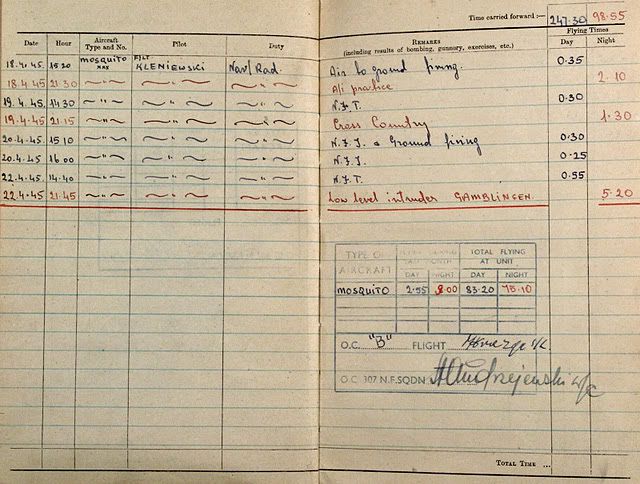 Time carried forward :— 247.30 98.55
Date Hour Aircraft Type and No. Pilot Duty REMARKS (including results of bombing, gunnery, exercises, etc.) Flying Times Day Night
18.4.45. 15 20 MOSQUITO F/LT KLENIEWSKI Nav/Rad. Air to ground firing. 0.35
18.4.45 21.30 — " — — " — — " — A/i practice 2.10
19.4.45. 14 30 — " — — " — — " — N.F.T. 0.30
19.4.45 21.15 — " — — " — — " — Cross Country 1.30
20.4.45 15 10 — " — — " — — " — N.F.T. & Ground firing 0.30
20.4.45. 16 00 — " — — " — — " — N.F.T. 0.25
22.4.45 14.40 — " — — " — — " — N.F.T. 0.55
22.4.45 21.45 — " — — " — — " — Low level intruder GAMBLINGEN. 5.20
TYPE OF AIRCRAFT FLYING LAST MONTH TOTAL FLYING AT UNIT
DAY NIGHT DAY NIGHT
MOSQUITO 2.55 9.00 83.20 75.10
O.C. "B" FLIGHT
O.C. 307 N.F. SQDN
TOTAL TIME ...